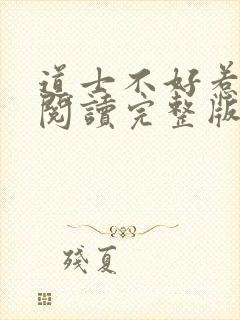 道士不好惹
閱讀完整版
殘夏